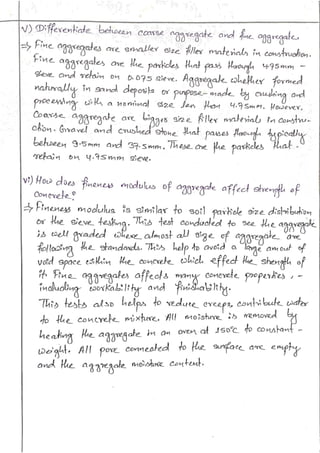 v) Differentiate between coarse aggregate and fine aggregate.
⇒ Fine aggregates are smaller size filler materials in construction.
Fine aggregates are the particles that pass through 4.75mm -
sieve and retain on 0.075 sieve. Aggregate whether formed
naturally in sand deposits or purpose-made by crushing and
processing with a nominal size less than 4.75mm. However,
Coarse aggregate are bigger size filler materials in constru-
ction. Gravel and crushed stone that passes through typically
between 9.5mm and 37.5mm. These are the particles that -
retain on 4.75mm sieve.
vi) How does fineness modulus of aggregate affect strength of
concrete?
⇒ Fineness modulus is similar to soil particle size distribution
or the sieve testing. This test conducted to see the aggregate
is well graded where almost all size of aggregate are
following the standards. This help to avoid a large amout of
void space within the concrete which effect the strength of
it. Fine aggregates affects many concrete properties, -
including workability and finishability.
This tests also helps to reduce creeps, contribute water
to the concrete mixture. All moisture is removed by
heating the aggregate in an oven at 150°C to constant -
weight. All pore connected to the surface are empty
and the aggregate moisture content.